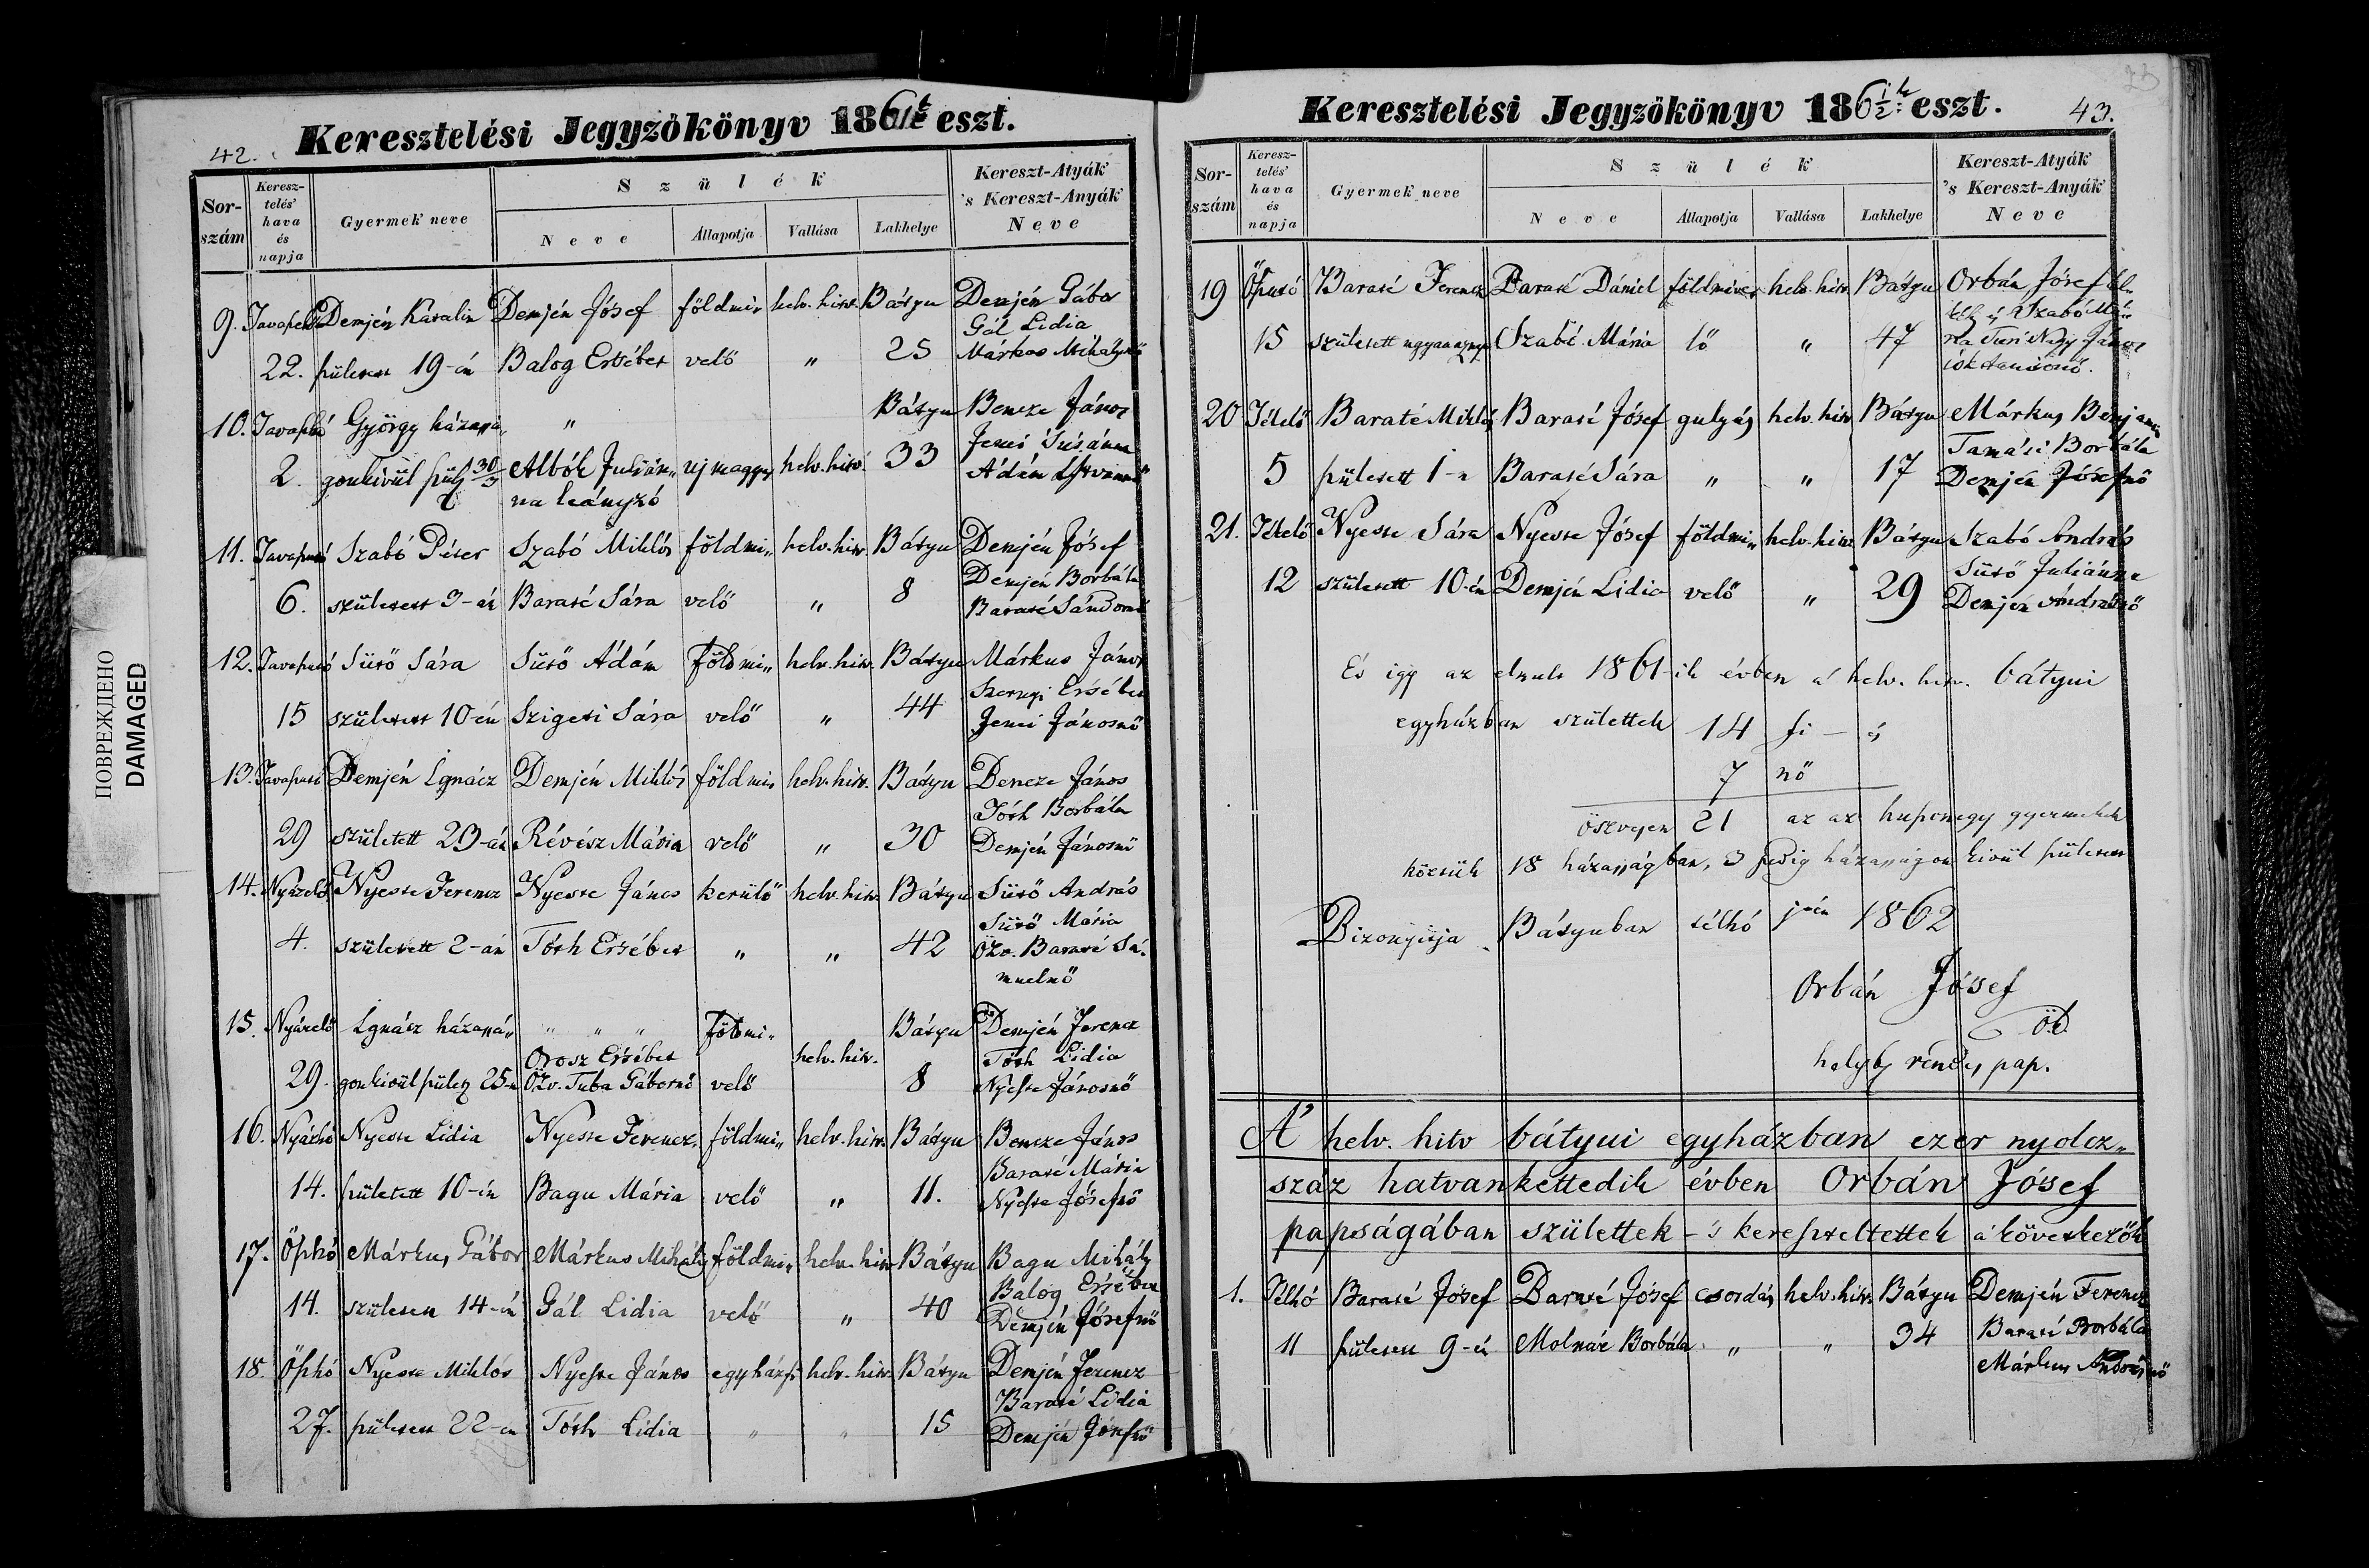 42.
Keresztelési Jegyzőkönyv 1861ik eszt.
Sor-szám
Keresz-telés' hava és napja
Gyermek neve
Szülék
Neve
Állapotja
Vallása
Lakhelye
Kereszt-Atyák 's Kereszt-Anyák Neve
9. Demjén Karalin Demjén Jósef földmi„ helv. hitv. Bátyu Demjén Gábor
Gál Lidia
22. született 19-én Balog Ersébet velő „ 25 Márkus Mihálynő
10. György házassá„ „ Bátyu Bencze János
2. gonkivül szül 30/3 Albók Julián„ uj magyar helv. hitv. 33 Jenei Susánna
na leányzó Ádám Istvánnő
11. Tavaszutó Szabó Péter Szabó Miklós földmi„ helv. hitv. Bátyu Demjén Jósef
Demjén Borbála
6. született 3-án Baraté Sára velő „ 8 Baraté Sándornő
12. Tavaszutó Sütő Sára Sütő Ádám Földmi„ helv. hitv. Bátyu Márkus János
Ersébet
15 született 10-én Szigeti Sára velő „ 44 Jenei Jánosnő
13. Tavaszutó Demjén Ignácz Demjén Miklós földmi„ helv. hitv. Bátyu Bencze János
Tóth Borbála
29 született 23-án Révész Mária velő „ 30 Demjén Jánosnő
14. Nyárelő Nyeste Ferencz Nyeste János kerülő helv. hitv. Bátyu Sütő András
Sütő Mária
4. született 2-án Tóth Ersébet „ „ 42 Özv. Baraté Sá-
muelnő
15. Nyárelő Ignácz házassá„ „ „ „ Földmi„ helv. hitv. Bátyu Demjén Ferencz
Orosz Ersébet Tóth Lidia
29. gonkivül szülez 25-n Özv. Tuba Gábornő velő 8 Nyeste Jánosnő
16. Nyárhó Nyeste Lidia Nyeste Ferencz földmi„ helv. hitv. Bátyu Bencze János
Baraté Mária
14. született 10-én Bagu Mária velő „ 11. Nyeste Jósefnő
17. Őszhó Márkus Gábor Márkus Mihály földmi„ helv. hitv. Bátyu Bagu Mihály
Balog Ersébet
14. született 14-én Gál Lidia velő „ 40 Demjén Jósefnő
18. Őszhó Nyeste Miklós Nyeste János egyházfi helv. hitv. Bátyu Demjén Ferencz
Baraté Lidia
27. született 22-én Tóth Lidia „ „ 15 Demjén Jósefnő
ПОВРЕЖДЕНО
DAMAGED
Keresztelési Jegyzőkönyv 186½ik eszt.
43.
Sor-szám
Keresz-telés' hava és napja
Gyermek neve
Szülék
Neve
Állapotja
Vallása
Lakhelye
Kereszt-Atyák 's Kereszt-Anyák Neve
19 Őszutó Baraté Ferencz Baraté Dániel földmivel helv. hitv. Bátyu Orbán Jósef
és Szabó Má-
15 született ugyanaznap Szabó Mária lő „ 47 ria Nagy János
20 Télelő Baraté Miklós Baraté Jósef gulyás helv. hitv. Bátyu Márkus Benjamin
Tamási Borbála
5 született 1-n Baraté Sára „ „ 17 Demjén Jósefnő
21. Télelő Nyeste Sára Nyeste Jósef földmi„ helv. hitv. Bátyu Szabó András
Sütő Juliánna
12 született 10-én Demjén Lidia velő „ 29 Demjén Andrásnő
És igy az elmult 1861-ik évben a' helv. hitv. bátyui
egyházban születtek 14 fi - és
7 nő
öszvesen 21 az az huszonegy gyermekek
közzük 18 házasságban, 3 pedig házasságon kivül született
Bizonyitja Bátyuban télhó 1862
Orbán Jósef
helybeli rendes pap.
A' helv. hitv bátyui egyházban ezer nyolcz„
száz hatvankettedik évben Orbán Jósef
papságában születtek - 's kereszteltettek a' következők
1. Télhó Baraté Jósef Baraté Jósef csordás helv. hitv. Bátyu Demjén Ferencz
Baraté Borbála
11 született 9-én Molnár Borbála „ „ 34 Márkus Andrásnő